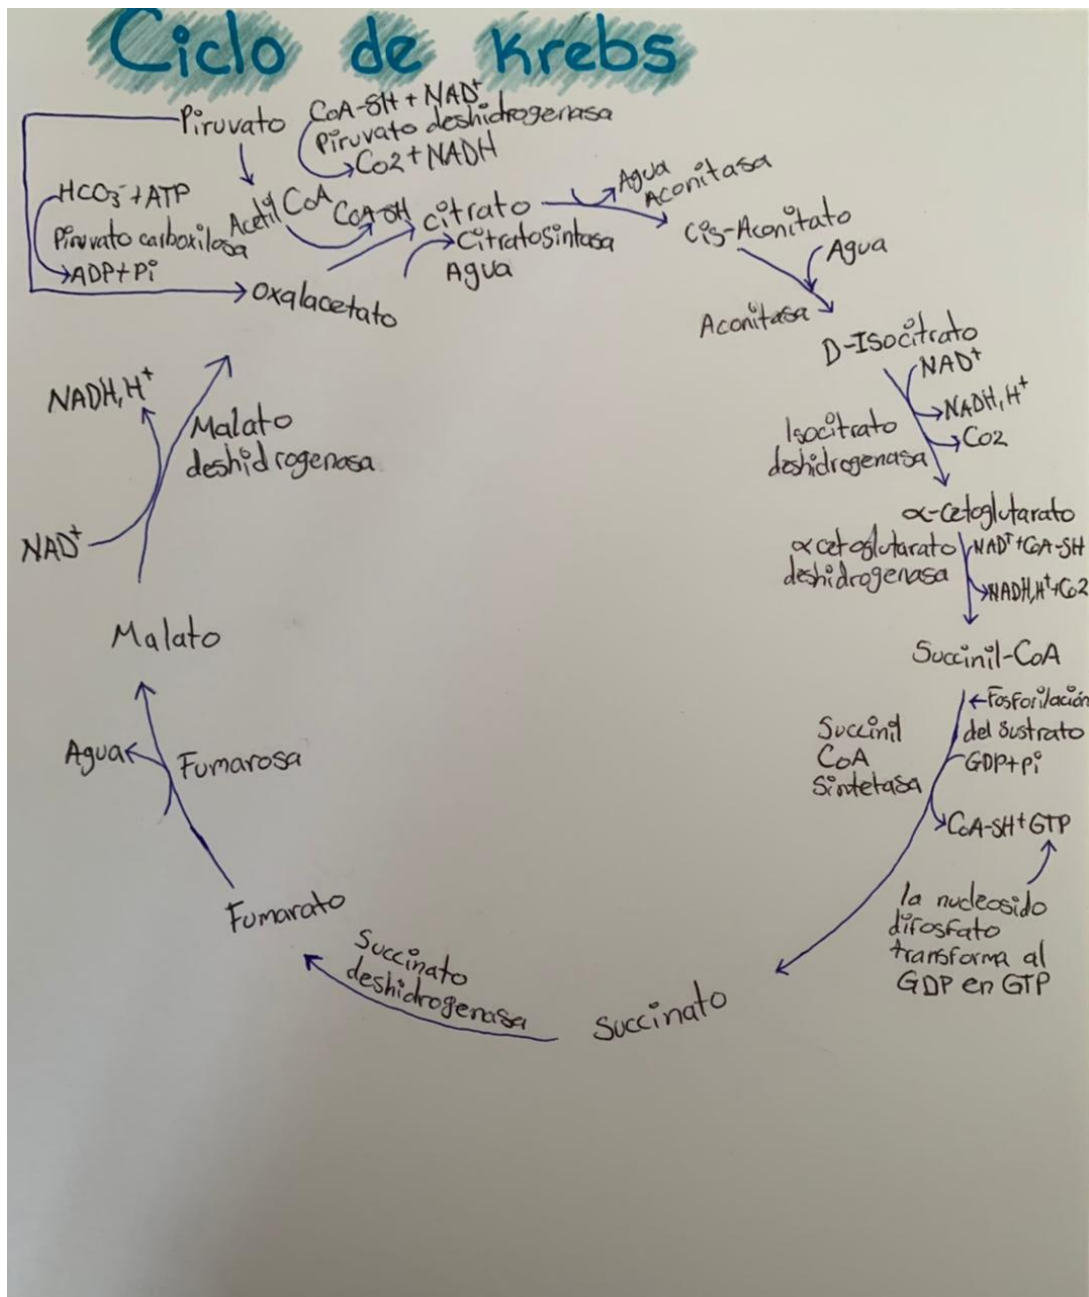 Ciclo de Krebs
Piruvato
CoA-SH + NAD⁺
Piruvato deshidrogenasa
Co2 + NADH
HCO₃⁻ + ATP
Piruvato carboxilosa
ADP+Pi
Acetil CoA
CoA-SH
Citrato
Citratosintasa
Agua
Oxalacetato
Agua
Aconitasa
Cis-Aconitato
Agua
Aconitasa
D-Isocitrato
NAD⁺
NADH, H⁺
Co2
Isocitrato
deshidrogenasa
α-Cetoglutarato
α cetoglutarato
deshidrogenasa
NAD⁺+CoA-SH
NADH,H⁺+Co2
Succinil-CoA
←Fosforilación
del sustrato
GDP+Pi
Succinil
CoA
Sintetasa
CoA-SH+GTP
la nucleosido
difosfato
transforma al
GDP en GTP
Succinato
Succinato
deshidrogenasa
Fumarato
Fumarosa
Agua
Malato
NAD⁺
NADH, H⁺
Malato
deshidrogenasa